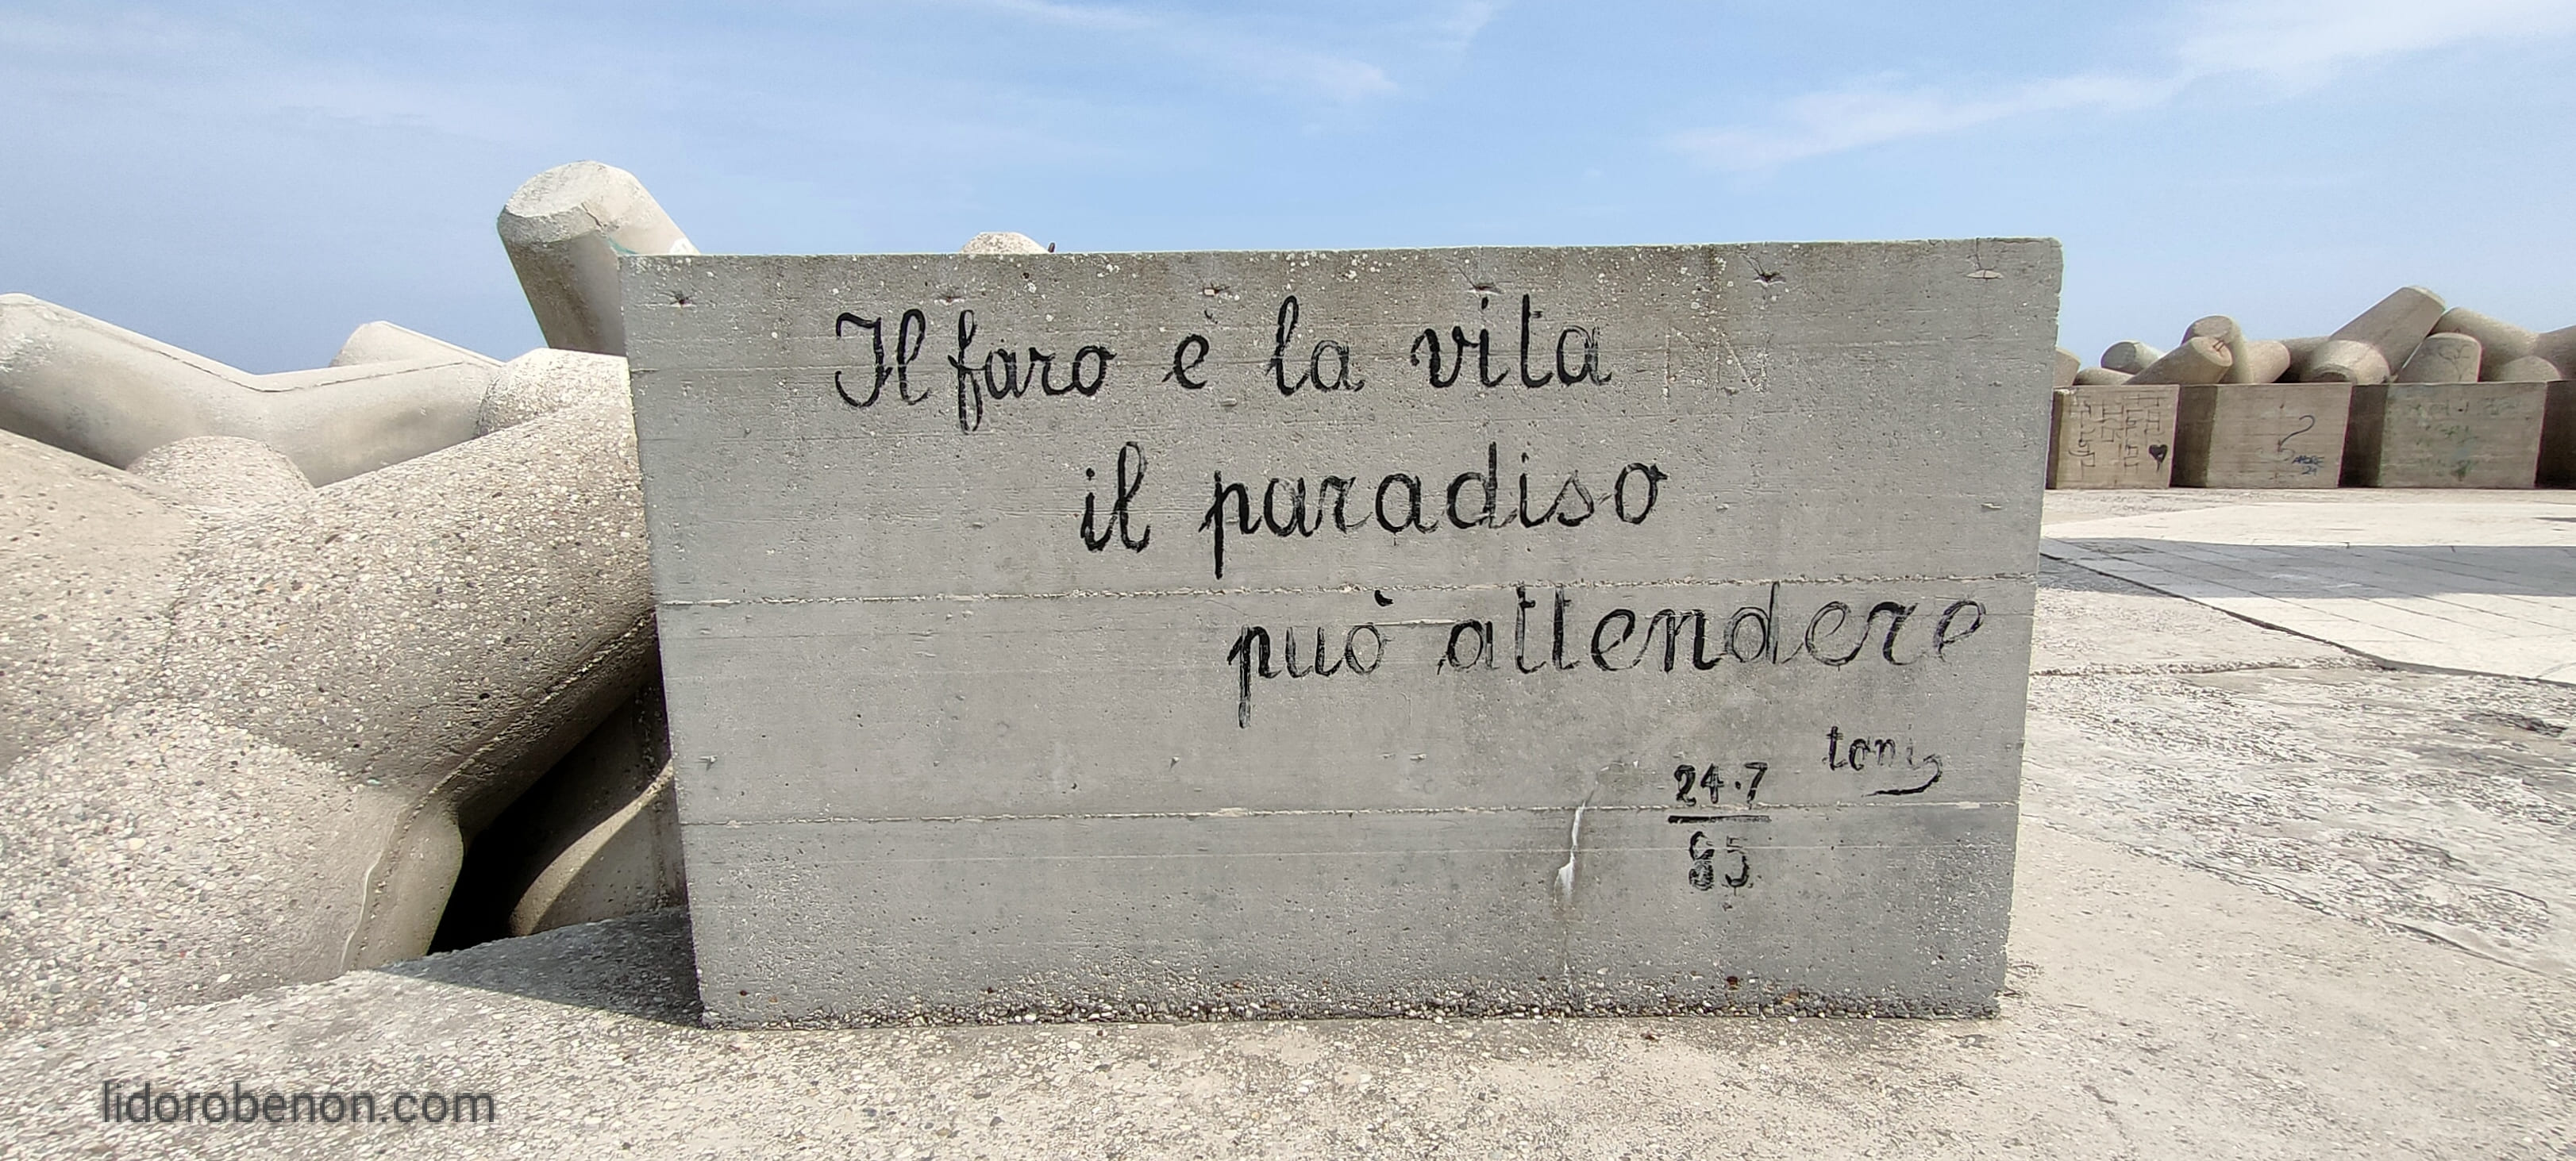 Il faro è la vita
il paradiso
può attendere
toni
24.7
85
AMORE
lidorobenon.com